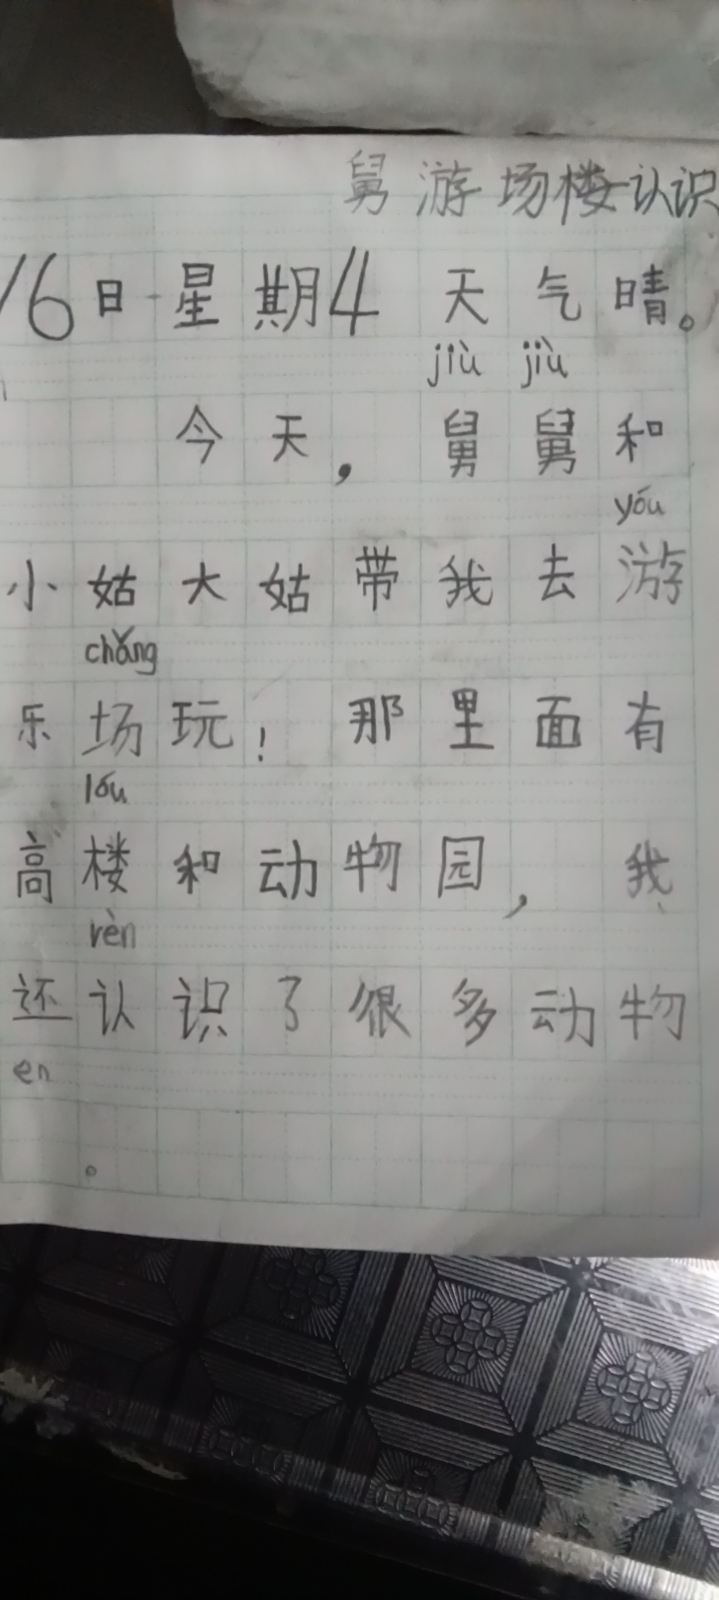 舅游场楼认识
16日星期4天气晴。
jiù jiù
今天，舅舅和
yóu
小姑大姑带我去游
chǎng
乐场玩！那里面有
lóu
高楼和动物园，我
rèn
还认识了很多动物
en
。